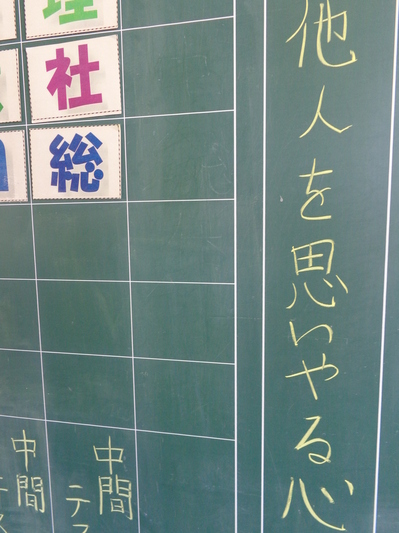 他人を思いやる心
理
社
総
中間
テス
中間
テス